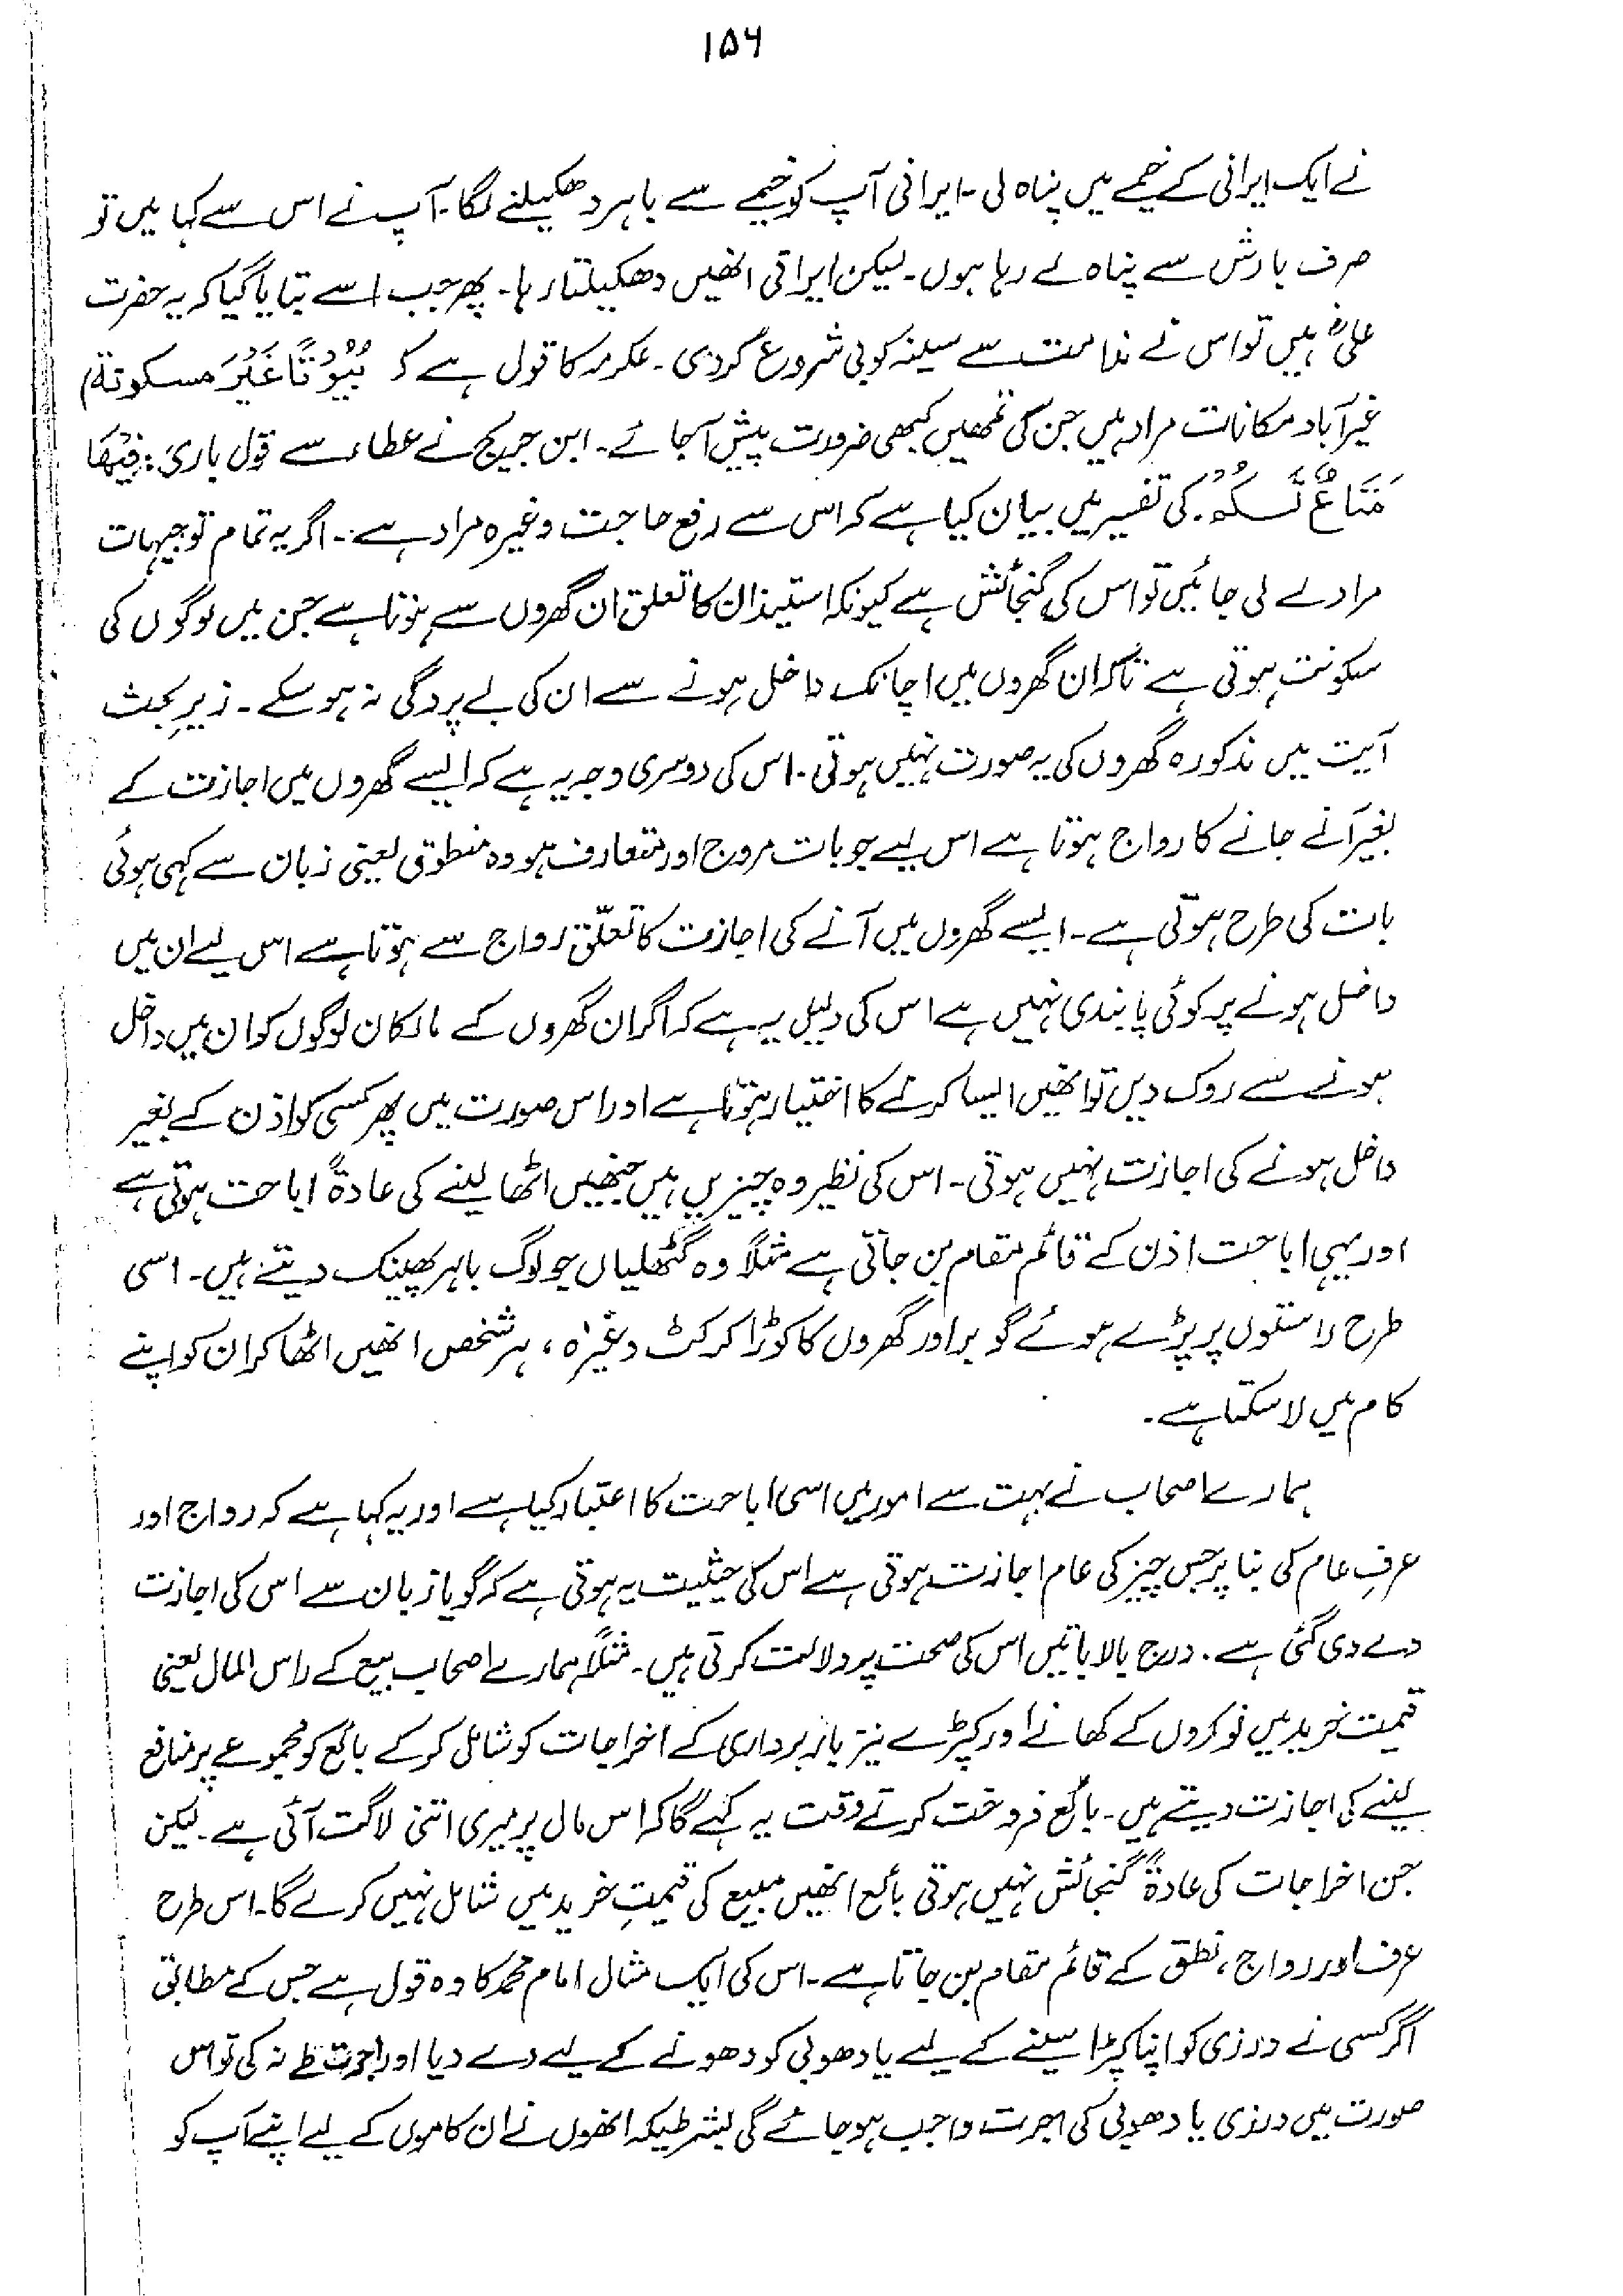 ۱۵۶
نے ایک ایرانی کے خیمے میں پناہ لی۔ ایرانی آپ کو خیمے سے باہر دھکیلنے لگا۔ آپ نے اس سے کہا میں تو
صرف بارش سے پناہ لے رہا ہوں۔ لیکن ایرانی انھیں دھکیلتا رہا۔ پھر جب اسے بتایا گیا کہ یہ حضرت
علیؓ ہیں تو اس نے ندامت سے سینہ کوبی شروع کر دی۔ عکرمہ کا قول ہے کہ بُيُوْتًا غَيْرَ مسکونۃ)
غیر آباد مکانات مراد ہیں جن کی تمھیں کبھی ضرورت پیش آ جائے۔ ابن جریج نے عطاء سے قول باری: فِيْهَا
مَتَاعٌ لَّكُمْ۔ کی تفسیر میں بیان کیا ہے کہ اس سے رفع حاجت وغیرہ مراد ہے۔ اگر یہ تمام توجیہات
مراد لے لی جائیں تو اس کی گنجائش ہے کیونکہ استیذان کا تعلق ان گھروں سے ہوتا ہے جن میں لوگوں کی
سکونت ہوتی ہے تاکہ ان گھروں میں اچانک داخل ہونے سے ان کی بے پردگی نہ ہو سکے۔ زیرِ بحث
آیت میں مذکورہ گھروں کی یہ صورت نہیں ہوتی۔ اس کی دوسری وجہ یہ ہے کہ ایسے گھروں میں اجازت کے
بغیر آنے جانے کا رواج ہوتا ہے اس لیے جو بات مروج اور متعارف ہو وہ منطوق یعنی زبان سے کہی ہوئی
بات کی طرح ہوتی ہے۔ ایسے گھروں میں آنے کی اجازت کا تعلّق رواج سے ہوتا ہے اس لیے ان میں
داخل ہونے پر کوئی پابندی نہیں ہے اس کی دلیل یہ ہے کہ اگر ان گھروں کے مالکان لوگوں کو ان میں داخل
ہونے سے روک دیں تو انھیں ایسا کرنے کا اختیار ہوتا ہے اور اس صورت میں پھر کسی کو اذن کے بغیر
داخل ہونے کی اجازت نہیں ہوتی۔ اس کی نظیر وہ چیزیں ہیں جنھیں اٹھا لینے کی عادۃً اباحت ہوتی ہے
اور یہی اباحت اذن کے قائم مقام بن جاتی ہے مثلاً وہ گٹھلیاں جو لوگ باہر پھینک دیتے ہیں۔ اسی
طرح راستوں پر پڑے ہوئے گوبر اور گھروں کا کوڑا کرکٹ وغیرہ، ہر شخص انھیں اٹھا کر ان کو اپنے
کام میں لا سکتا ہے۔
ہمارے اصحاب نے بہت سے امور میں اسی اباحت کا اعتبار کیا ہے اور یہ کہا ہے کہ رواج اور
عرفِ عام کی بنا پر جس چیز کی عام اجازت ہوتی ہے اس کی حیثیت یہ ہوتی ہے کہ گویا زبان سے اس کی اجازت
دے دی گئی ہے۔ درج بالا باتیں اس کی صحت پر دلالت کرتی ہیں۔ مثلاً ہمارے اصحاب بیع کے راس المال یعنی
قیمت خرید میں نوکروں کے کھانے اور کپڑے نیز بار برداری کے اخراجات کو شامل کر کے بائع کو مجموعے پر منافع
لینے کی اجازت دیتے ہیں۔ بائع فروخت کرتے وقت یہ کہے گا کہ اس مال پر میری اتنی لاگت آئی ہے۔ لیکن
جن اخراجات کی عادۃً گنجائش نہیں ہوتی بائع انھیں مبیع کی قیمتِ خرید میں شامل نہیں کرے گا۔ اس طرح
عرف اور رواج، نطق کے قائم مقام بن جاتا ہے۔ اس کی ایک مثال امام محمد کا وہ قول ہے جس کے مطابق
اگر کسی نے درزی کو اپنا کپڑا سینے کے لیے یا دھوبی کو دھونے کے لیے دے دیا اور اجرت طے نہ کی تو اس
صورت میں درزی یا دھوبی کی اجرت واجب ہو جائے گی بشرطیکہ انھوں نے ان کاموں کے لیے اپنے آپ کو